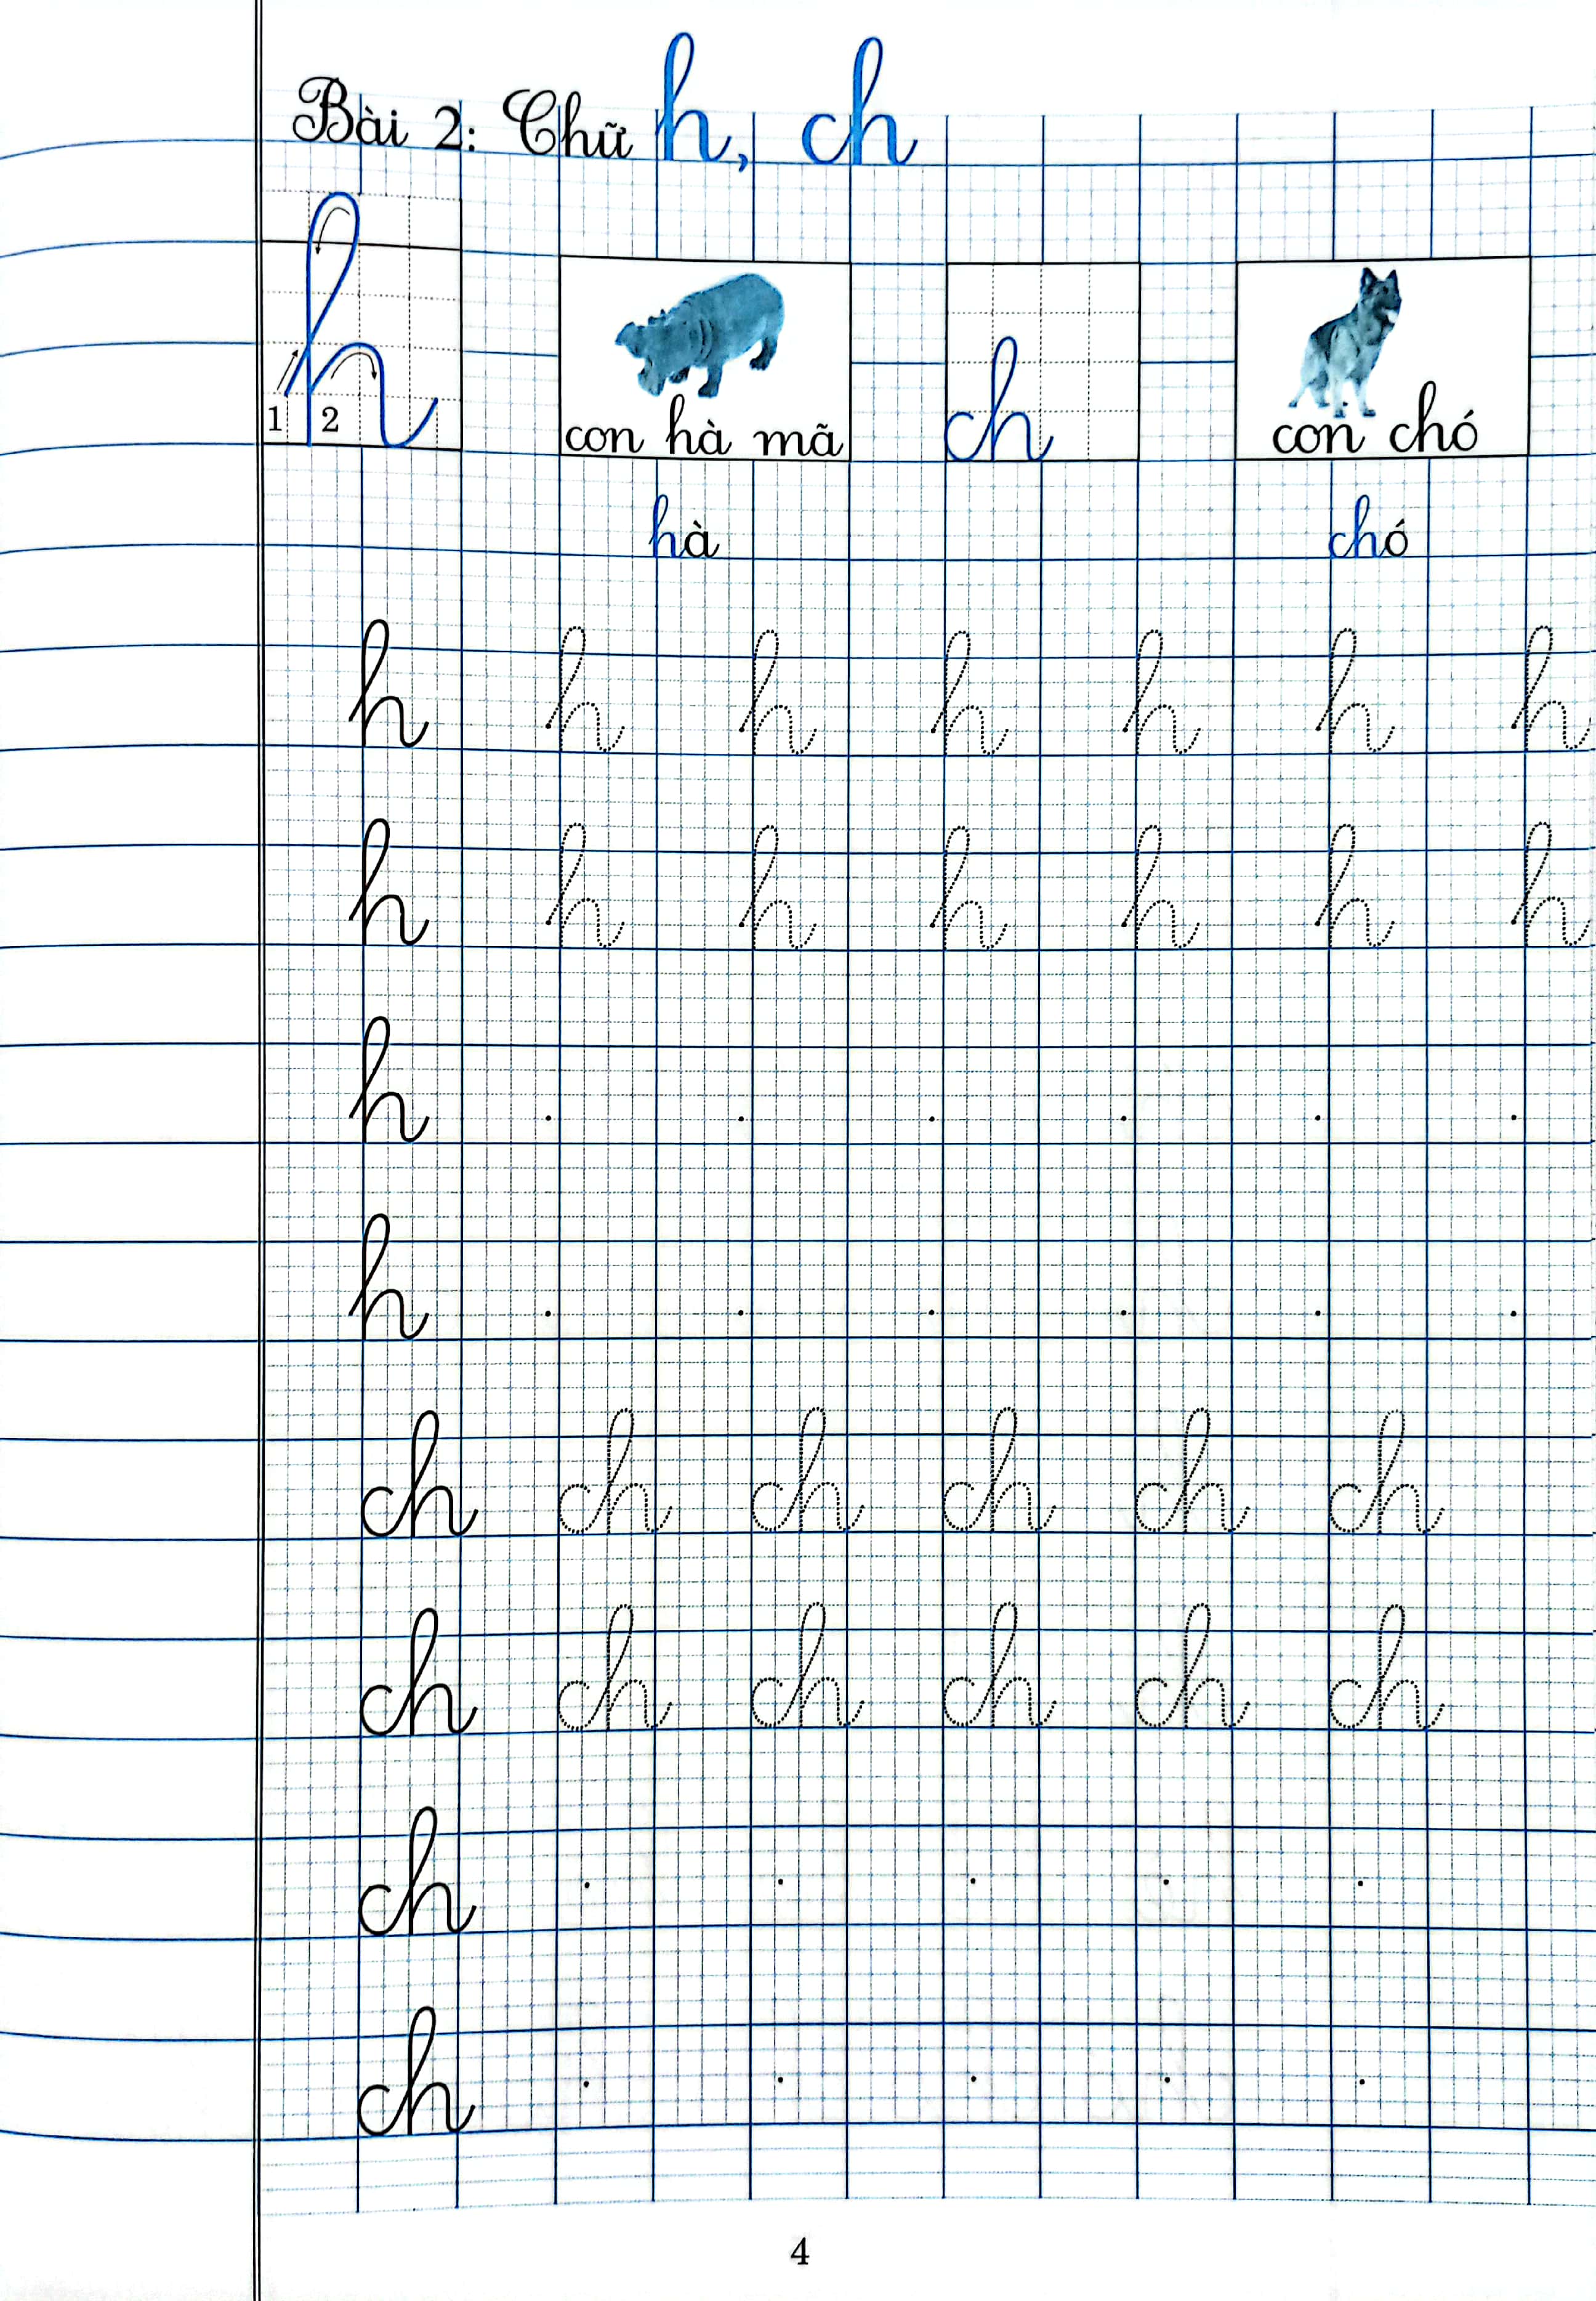 Bài 2: Chữ h, ch
h 1 2 con hà mã ch con chó
hà chó
h h h h h h h
h h h h h h h
h
h
ch ch ch ch ch ch
ch ch ch ch ch ch
ch
ch
4